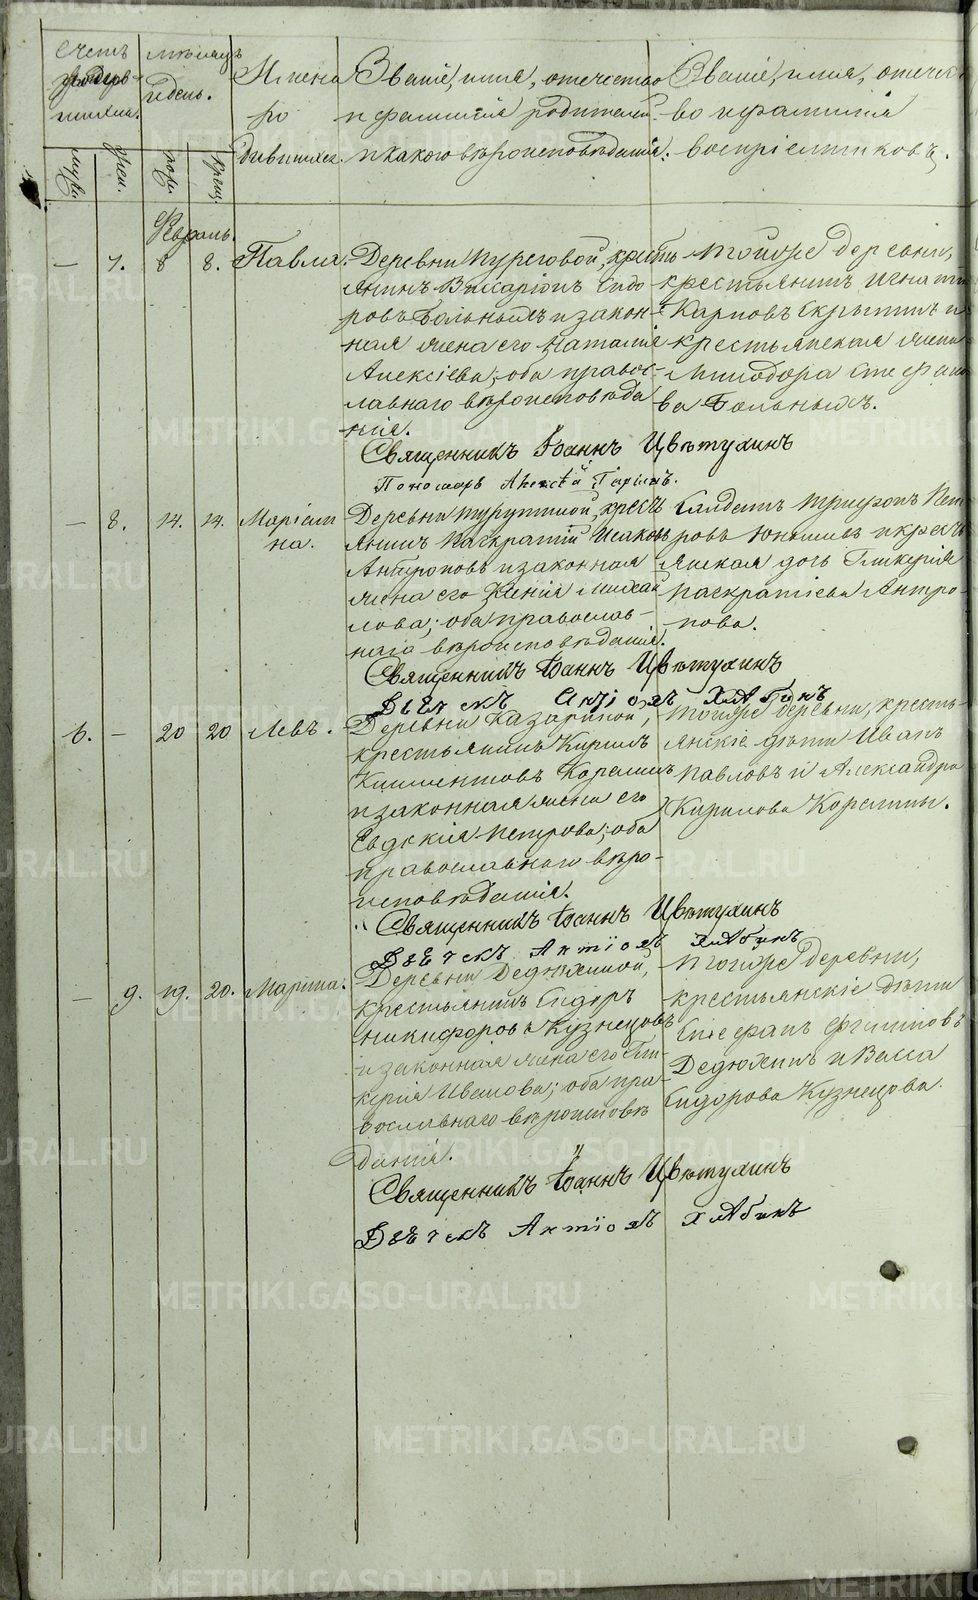 Счетъ
родив-
шихся.
мѣсяцъ
и день.
Имена
ро
дившихся.
Званіе, имя, отечество
и фамилія родителей
и какого вѣроисповѣданія.
Званіе, имя, отечест
во и фамилія
воспріемниковъ.
муж.
жен.
рож.
крещ.
Февраль.
— 7. 8 8. Павла.
Деревни Пуреговой, кресть
янинъ Виссаріонъ Сидо
ровъ Больныхъ и закон-
ная жена его Наталія
Алексіева; оба правос-
лавнаго вѣроисповѣда
нія.
Тойже деревни,
крестьянинъ Игнатій
Карповъ Скрыпинъ и
крестьянская жена
Минодора Стефано
ва Больныхъ.
Священникъ Іоаннъ Цвѣтухинъ
Пономарь Алексѣй
— 8. 14. 14. Маріам
на.
Деревни кресть
янинъ Панкратій Исаковъ
Антроповъ и законная
жена его Ксенія Михай
лова; оба православ-
наго вѣроисповѣданія.
Салдатъ Трифонъ Пет
ровъ и кресть
янская дочь Гликерія
Панкратіева Антро-
пова.
Священникъ Іоаннъ Цвѣтухинъ
Дьячекъ Антіохъ Хлѣбинъ
6. — 20 20 Левъ.
Деревни Казариной,
крестьянинъ Кирилъ
Климентовъ Корелинъ
и законная жена его
Евдокія Петрова; оба
православнаго вѣро-
исповѣданія.
Тойже деревни, кресть-
янскіе дѣти Иванъ
Павловъ и Александра
Кирилова Корелины.
Священникъ Іоаннъ Цвѣтухинъ
Дьячекъ Антіохъ Хлѣбинъ
— 9. 19. 20. Марина.
Деревни Дедюхиной,
крестьянинъ Сидоръ
Никифоровъ Кузнецовъ
и законная жена его Гли-
керія Иванова; оба пра-
вославнаго вѣроисповѣ
данія.
Тойже деревни,
крестьянскіе дѣти
Стефанъ Филиповъ
Дедюхинъ и Васса
Сидорова Кузнецова.
Священникъ Іоаннъ Цвѣтухинъ
Дьячекъ Антіохъ Хлѣбинъ
METRIKI.GASO-URAL.RU